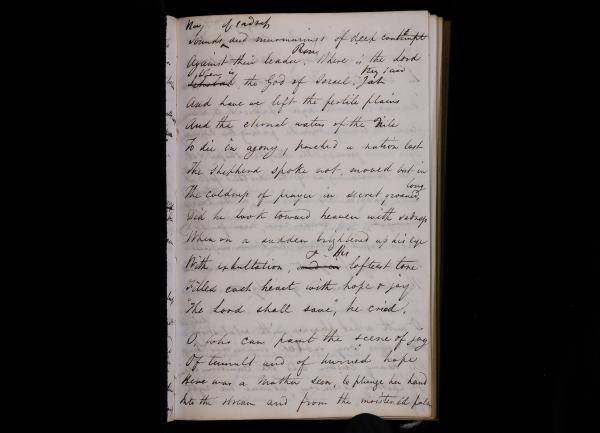 Now of sadness
Sounds and murmurings of deep contempt
Against their leader. Rose Where is the Lord
Where is Jehovah the God of Israel. they said
And have we left the fertile plains
And the eternal waters of the Nile
To die in agony, parched a nation lost
The shepherd spoke not, moved but in
The coldness of prayer in secret groaned, long
Did he look toward heaven with sadness
When on a sudden brightened up his eye
With exhultation, & His and in loftiest tone
Filled each heart with hope & joy
"The Lord shall save", he cried.
O, who can paint the scene of joy
Of tumult and of hurried hope
Here was a Mother seen, to plunge her hand
Into the stream and from the moistened palm